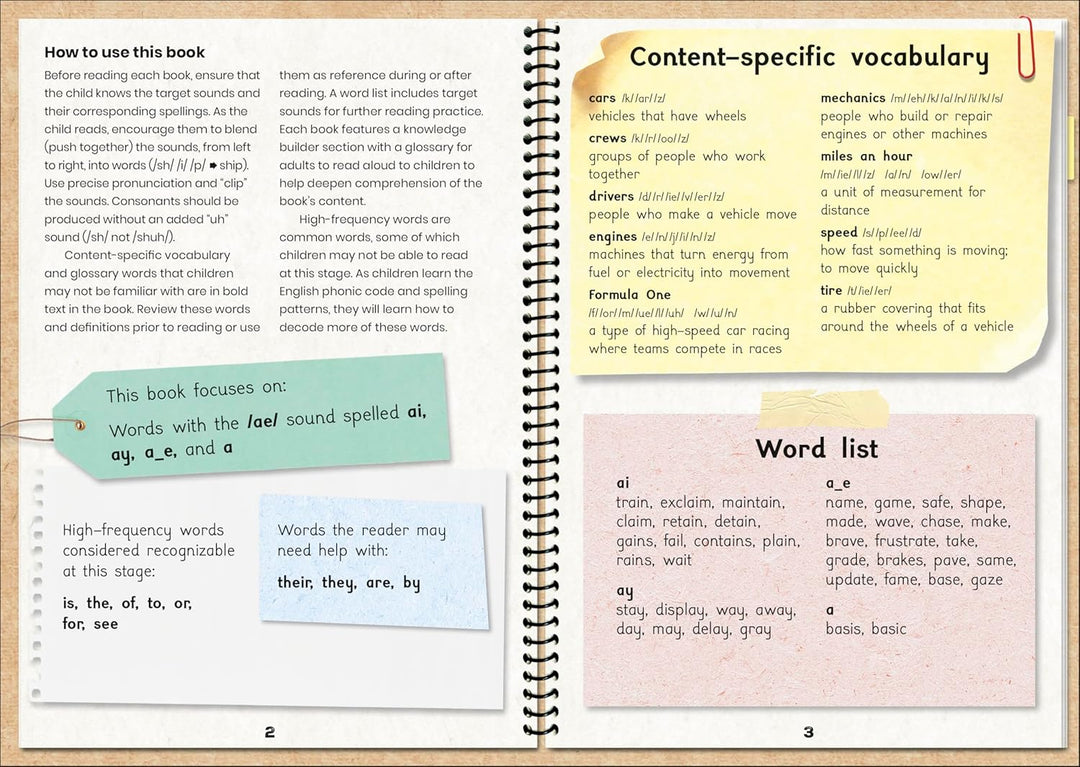 How to use this book
Before reading each book, ensure that
the child knows the target sounds and
their corresponding spellings. As the
child reads, encourage them to blend
(push together) the sounds, from left
to right, into words (/sh/ /i/ /p/ ➨ ship).
Use precise pronunciation and “clip”
the sounds. Consonants should be
produced without an added “uh”
sound (/sh/ not /shuh/).
Content-specific vocabulary
and glossary words that children
may not be familiar with are in bold
text in the book. Review these words
and definitions prior to reading or use
them as reference during or after
reading. A word list includes target
sounds for further reading practice.
Each book features a knowledge
builder section with a glossary for
adults to read aloud to children to
help deepen comprehension of the
book’s content.
High-frequency words are
common words, some of which
children may not be able to read
at this stage. As children learn the
English phonic code and spelling
patterns, they will learn how to
decode more of these words.
This book focuses on:
Words with the /ae/ sound spelled ai,
ay, a_e, and a
High-frequency words
considered recognizable
at this stage:
is, the, of, to, or,
for, see
Words the reader may
need help with:
their, they, are, by
2
Content-specific vocabulary
cars /k//ar//z/
vehicles that have wheels
crews /k//r//oo//z/
groups of people who work
together
drivers /d//r//ie//v//er//z/
people who make a vehicle move
engines /e//n//j//i//n//z/
machines that turn energy from
fuel or electricity into movement
Formula One
/f//or//m//ue//l//uh/ /w//u//n/
a type of high-speed car racing
where teams compete in races
mechanics /m//eh//k//a//n//i//k//s/
people who build or repair
engines or other machines
miles an hour
/m//ie//l//z/ /a//n/ /ow//er/
a unit of measurement for
distance
speed /s//p//ee//d/
how fast something is moving;
to move quickly
tire /t//ie//er/
a rubber covering that fits
around the wheels of a vehicle
Word list
ai
train, exclaim, maintain,
claim, retain, detain,
gains, fail, contains, plain,
rains, wait
ay
stay, display, way, away,
day, may, delay, gray
a_e
name, game, safe, shape,
made, wave, chase, make,
brave, frustrate, take,
grade, brakes, pave, same,
update, fame, base, gaze
a
basis, basic
3